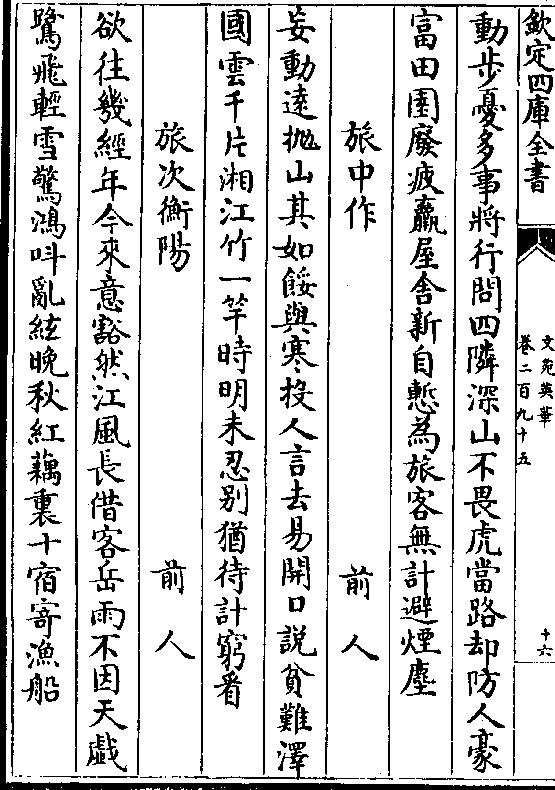 欽定四庫全書
文苑英華
卷二百九十五
十六
動步憂多事將行問四隣深山不畏虎當路却防人豪
富田園廢疲羸屋舎新自慙為旅客無計避煙塵
旅中作 前人
妄動逺抛山其如餒與寒投人言去易開口説貧難澤
國雲千片湘江竹一竿時明未忍别猶待計窮看
旅次衡陽 前人
欲往幾經年今來意豁然江風長借客岳雨不因天戯
鷺飛輕雪驚鴻叫亂絃晚秋紅藕裏十宿寄漁船